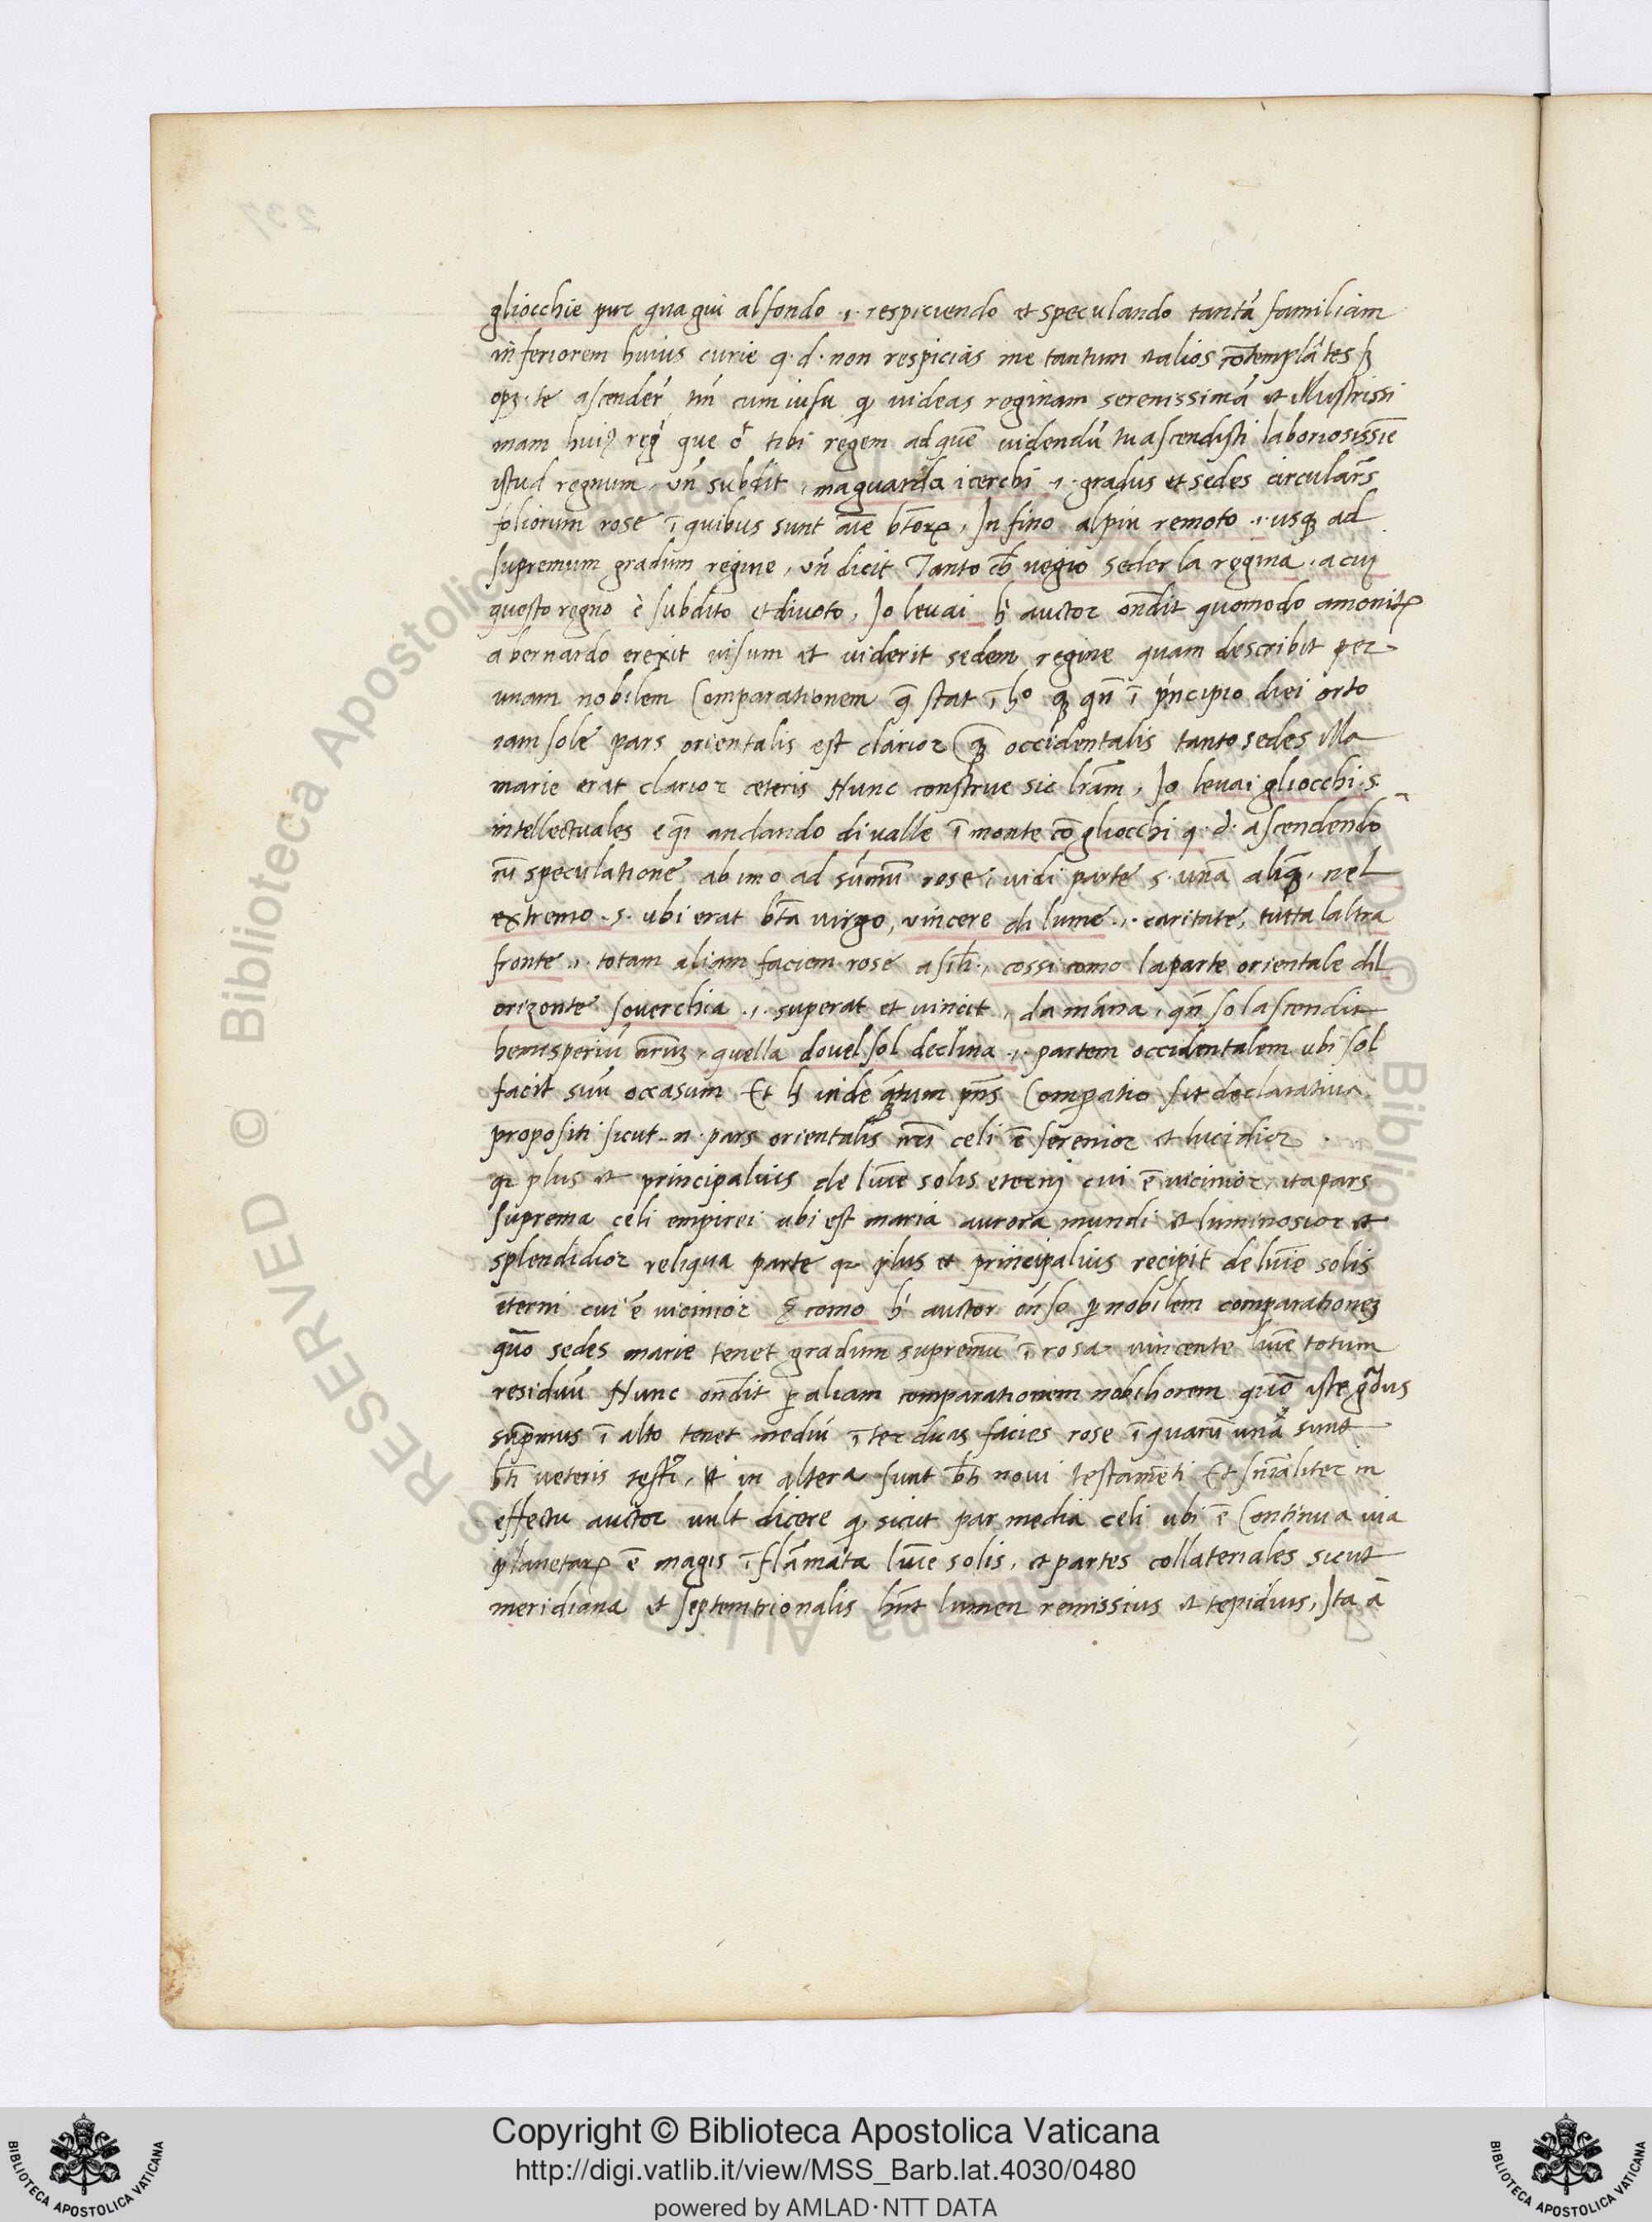 gliocchie pur qua giu al fondo .i. respiciendo et speculando tantā familiam
inferiorem huius curie q. d. non respicias me tantum et alios cōtemplātes sȝ
opȝ te ascender̄ tn̄ cum iusu q̨ uideas reginam serenissimā et illustrissi
mam huiꝰ reg̣ que ō tibi regem ad quē uidendū tu ascendisti laboriosissīe
istud regnum, vn̄ subdit, ma guarda i cerchi .i. gradus et sedes circulār̄s
foliorum rose ī quibus sunt aīe btōrꝝ, In fino alpiu remoto .i. usqȝ ad
supremum gradum regine, vn̄ dicit Tanto ch̄ uegio seder la regina, a cuj
questo regno è subdito et divoto, Io levai h̄ auctor on̄dit quomodo amonitꝰ
a bernardo erexit visum et viderit sedem regine quam describit per
unam nobilem Comparationem q̄ stat ī hº qȝ qn̄ ī prīncipio diei orto
iam sole pars orientalis est clarior quā occidentalis tanto sedes illa
marie erat clarior ceteris Hunc construe sic lrām, Io levai gliocchi .s.
intellectuales e q̄si andando di valle ī monte cō gliocchi q. d. ascendendo
cū speculatione ab imo ad sūmū rose, vidi parte s. unā aliquā, nel
extremo .s. ubi erat btā virgo, vincere di lume .i. caritate, tutta laltra
fronte .i. totam aliam faciem rose a sili., cossi como la parte orientale dl
orizonte soverchia .i. superat et vincit, da māna, qn̄ sol ascendit
hemisperiū nrūȝ, quella dovel sol declina .i. partem occidentalem ubi sol
facit suū occasum Et h̄ vide quātum pn̄s Comparatio sit declarativa
propositi sicut .n. pars orientalis nrī celi ē serenior et lucidior
qꝛ plus et principalius de luīe solis eternj cui ē vicinior, ita pars
suprema celi empirei ubi est maria aurora mundi et luminosior et
splendidior reliqua parte qꝛ plus et principalius recipit de luīe solis
eterni cui ē vicinior E como h̄ auctor on̄so ꝑ nobilem comparationeȝ
quō sedes marie tenet gradum supremū ī rosa vincente luīe totum
residuū Hunc on̄dit ꝑ aliam comparationem nobiliorem quō iste grādus
suprēmus ī alto tenet mediū īter duas facies rose ī quarū unā sunt
btī veteris testī, et in altera sunt btī novi testamēti Et snīaliter in
effectu auctor vult dicere q̨ sicut par media celi ubi ē Continua via
planetarꝝ ē magis īflāmata luīe solis, et partes collateriales sicut
meridiana et septemtrionalis hn̄t lumen remissius et tepidius, Ita ā
Copyright © Biblioteca Apostolica Vaticana
http://digi.vatlib.it/view/MSS_Barb.lat.4030/0480
powered by AMLAD·NTT DATA